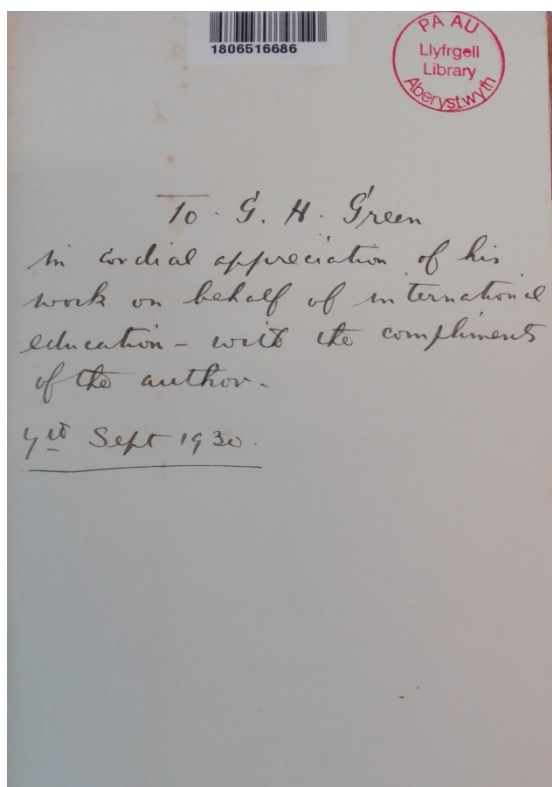 1806516686
PA AU
Llyfrgell
Library
Aberystwyth
To. G. H. Green
in cordial appreciation of his
work on behalf of international
education - with the compliments
of the author.
Sept 1930.